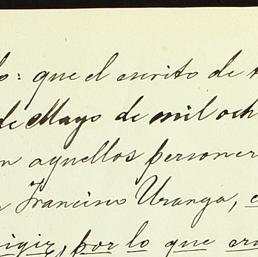 que el escrito de
de Mayo de mil och
n aquellos personer
Francisco Uranga,
igir, por lo que